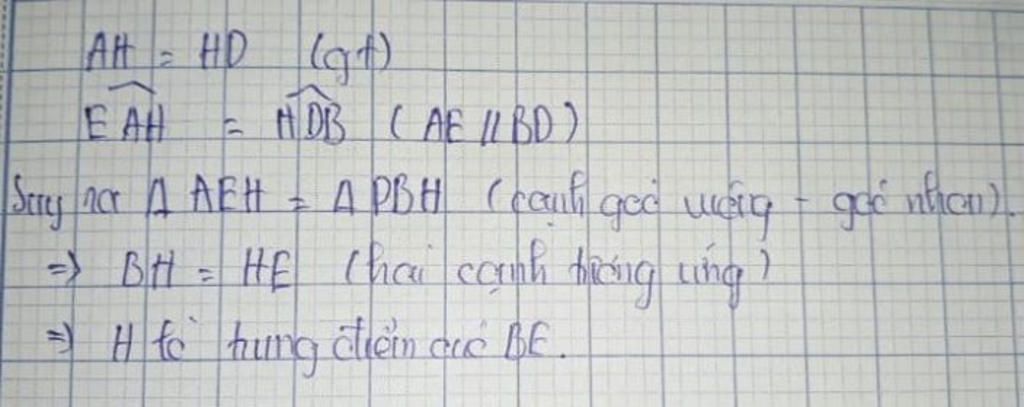 AH = HD (gt)
EAH = HDB (AE // BD)
Suy ra Δ AEH = Δ DBH (cạnh góc vuông - góc nhọn).
=> BH = HE (hai cạnh tương ứng)
=> H là trung điểm của BE.